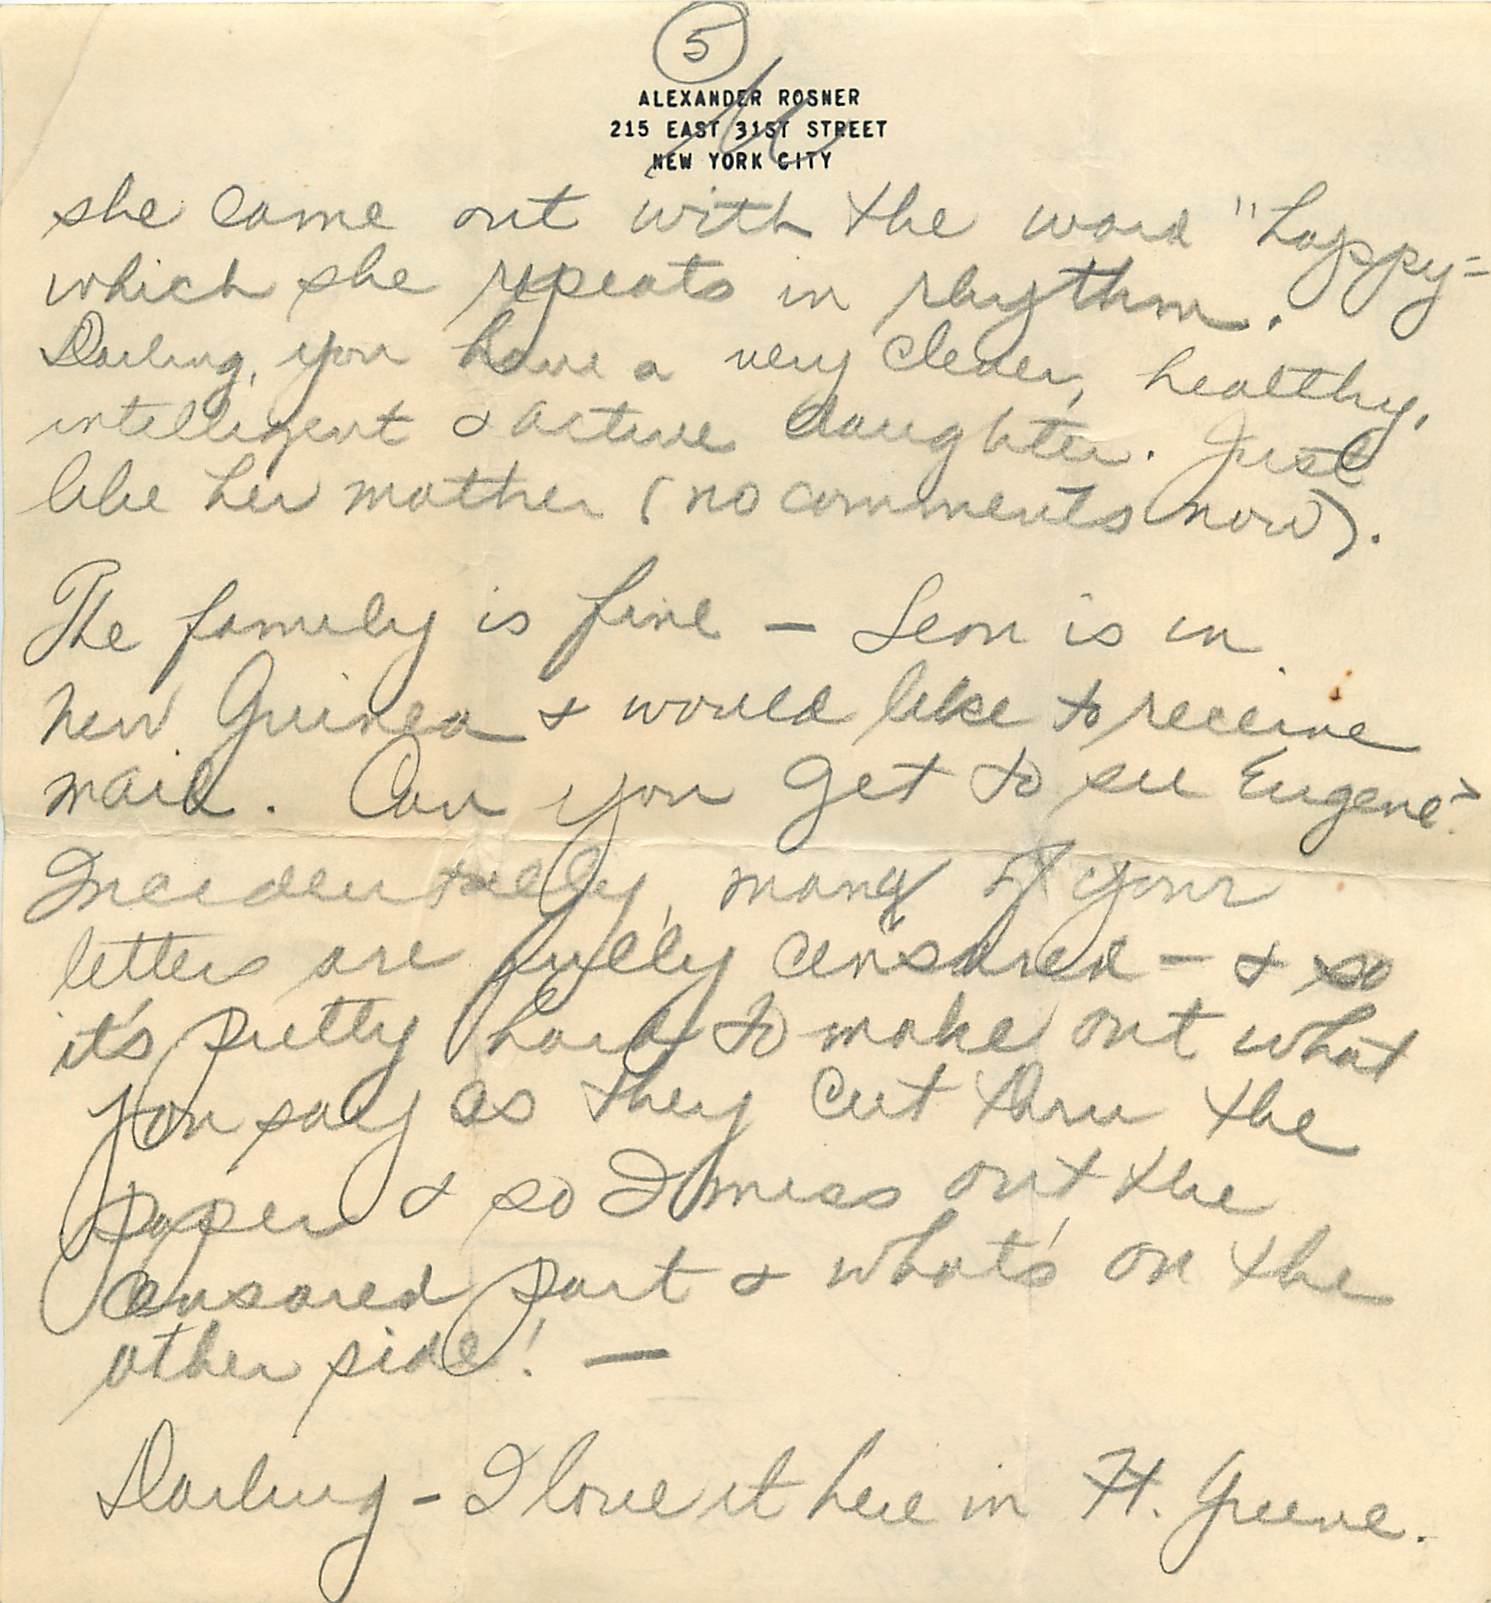 5
ALEXANDER ROSNER
215 EAST 31ST STREET
NEW YORK CITY
she came out with the word "happy-
which she repeats in rhythm.
Darling, you have a very clever, healthy,
intelligent & active daughter. Just
like her mother (no comments now).
The family is fine – Leon is in
New Guinea & would like to receive
mail. Can you get to see Eugene?
Incidentally, many of your
letters are fully censored – & so
it's pretty hard to make out what
you say as they cut thru the
paper & so I miss out the
censored part & what's on the
other side! –
Darling – I love it here in Ft. Greene.